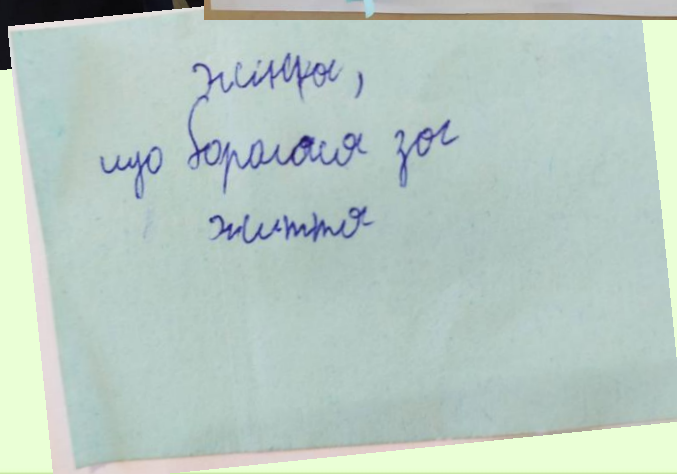 жінка,
що боролася за
життя